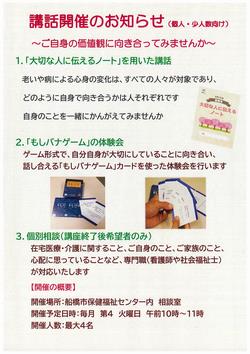 講話開催のお知らせ（個人・少人数向け）
～ご自身の価値観に向き合ってみませんか～
1.「大切な人に伝えるノート」を用いた講話
老いや病による心身の変化は、すべての人々が対象であり、
どのように自身で向き合うかは人それぞれです
自身のことを一緒にかんがえてみませんか
大切な人に伝える
ノート
2.「もしバナゲーム」の体験会
ゲーム形式で、自分自身が大切にしていることに向き合い、
話し合える「もしバナゲーム」カードを使った体験会を行います
3.個別相談（講座終了後希望者のみ）
在宅医療・介護に関すること、ご自身のこと、ご家族のこと、
心配に思っていることなど、専門職（看護師や社会福祉士）
が対応いたします
【開催の概要】
開催場所：船橋市保健福祉センター内 相談室
開催予定日時：毎月 第4 火曜日 午前10時～11時
開催人数：最大4名